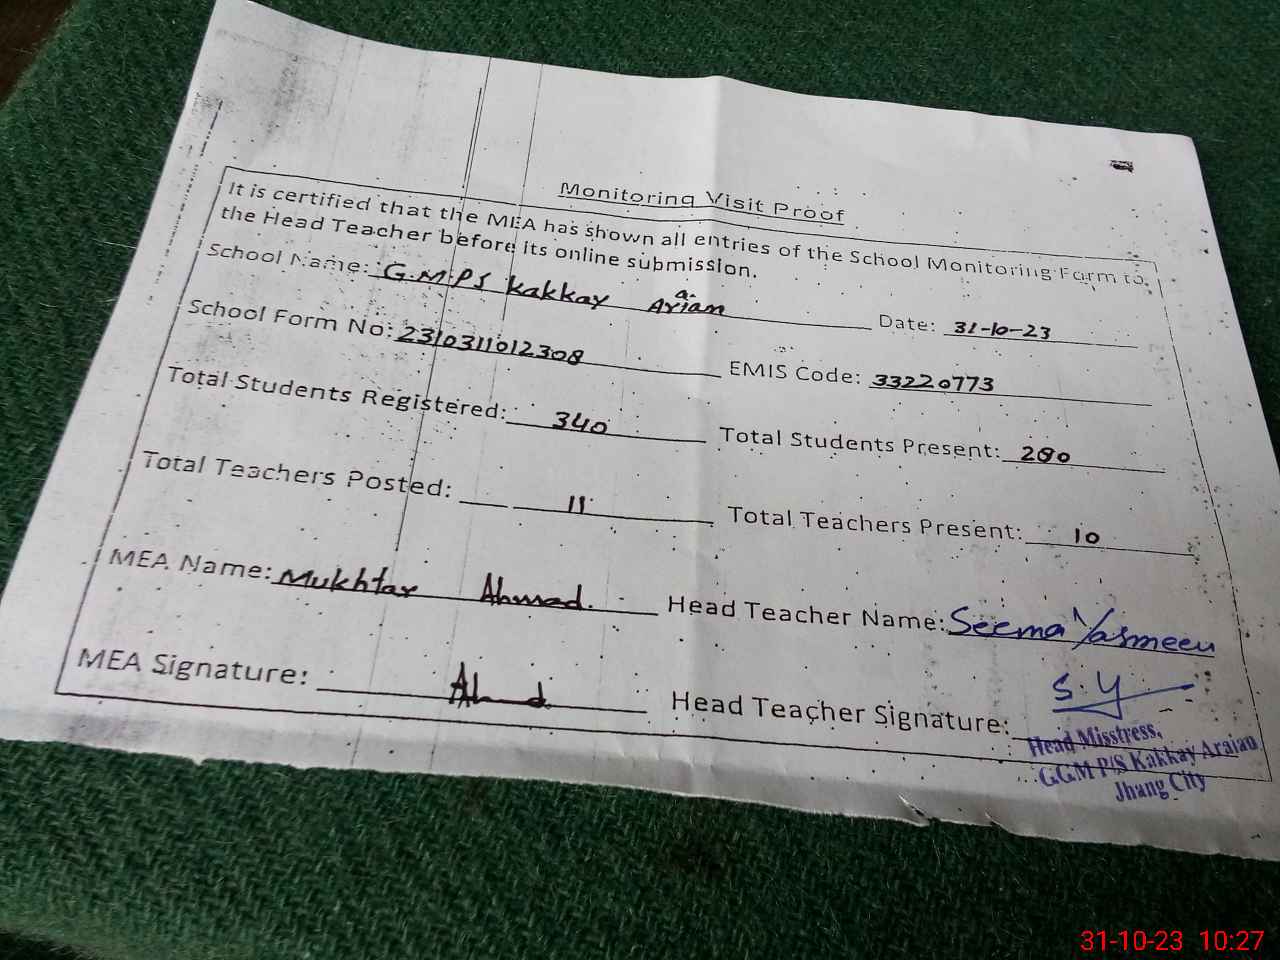 Monitoring Visit Proof
It is certified that the MEA has shown all entries of the School Monitoring Form to
the Head Teacher before its online submission.
School Name: G.M.P.S Kakkay Ariam a. Date: 31-10-23
School Form No: 2310311012308 EMIS Code: 33220773
Total Students Registered: 340 Total Students Present: 280
Total Teachers Posted: 11 Total Teachers Present: 10
MEA Name: Mukhtar Ahmad. Head Teacher Name: Seema Yasmeen
MEA Signature: Ahmd Head Teacher Signature: S.Y
Head Misstress,
G.G.M P/S Kakkay Araian
Jhang City
31-10-23 10:27